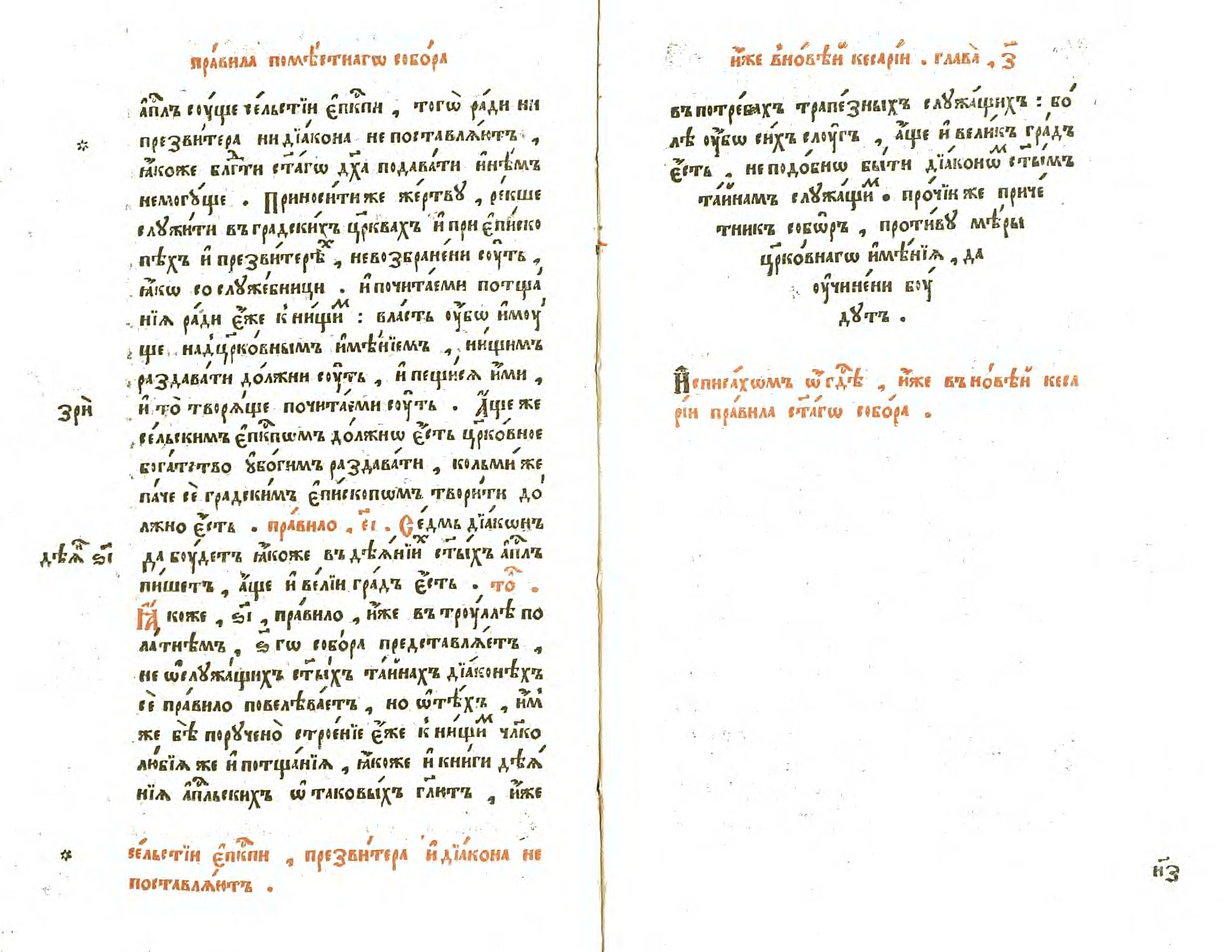 пра́вила помѣ́стнагѡ собо́ра
а҆пⷭ҇лъ соуще се́льстїи є҆пⷭ҇кпи , тогѡ̀ ра́ди ни
презви́тера ни дїа́кона не поставлѧ́ютъ ,
ꙗ҆́коже блгⷣти ст҃а́гѡ дх҃а подава́ти и҆нѣ́мъ
немогу́ще . Приноси́ти же же́ртву , ре́кше
служи́ти въ градски́хъ цр҃квахъ и҆ при є҆пи́ско
пѣхъ и҆ презви́терѣⷯ , невозбране́ни соу́ть ,
ꙗ҆́кѡ сослуже́бницы . и҆ почита́еми потща́
нїѧ ра́ди є҆́же к ни́щиⷨ : вла́сть оу҆́бѡ и҆моу́
ще над цр҃ко́внымъ и҆мѣ́нїемъ , ни́щимъ
раздава́ти до́лжни соу́ть , и҆ пещи́сѧ и҆́ми ,
и҆ то̀ творѧ́ще почита́еми соу́ть . А҆́ще же
се́льскимъ є҆пⷭ҇кпѡмъ до́лжнѡ є҆́сть цр҃ко́вное
бога́тство ᲂу҆бо́гимъ раздава́ти , кольми́ же
па́че сѐ градски́мъ є҆пи́скопѡмъ твори́ти до́
лжно є҆́сть . пра́вило , є҃і . Се́дмь дїа́кѡнъ
да боу́детъ ꙗ҆́коже въ дѣѧ́нїиⷯ ст҃ы́хъ а҆пⷭ҇лъ
пи́шетъ , а҆́ще и҆ ве́лїи гра́дъ є҆́сть . то́ⷧ .
Ꙗ҆́коже , ѕ҃і , пра́вило , и҆́же въ троу́ллѣ по
ла́тнѣмъ , ѕ҃ гѡ собо́ра представлѧ́етъ ,
не ѡ҆ служа́щихъ ст҃ы́хъ та́йнахъ дїа́конѣхъ
сѐ пра́вило повелѣва́етъ , но ѡ҆ тѣ́хъ , и҆́м
же бѣ̀ пору́чено строе́нїе є҆́же к ни́щиⷨ чл҃ко
лю́бїѧ же и҆ потща́нїѧ , ꙗ҆́коже и҆ книги дѣѧ́
нїѧ а҆пⷭ҇льскихъ ѡ҆ таковы́хъ гл҃ютъ , и҆́же
се́льстїи є҆пⷭ҇кпи , презви́тера и҆ дїа́кона не
поставлѧ́ютъ .
зрѝ
дѣѧⷩ҇ ѕ҃і
и҆́же в но́вѣй кесарі́и . глава̀ , з҃
въ потре́бахъ трапе́зныхъ служа́щихъ : бо́
лѣ оу҆́бѡ си́хъ слоу́гъ , а҆́ще и҆ вели́къ гра́дъ
є҆́сть , неподо́бнѡ бы́ти дїа́конѡⷨ ст҃ы́мъ
та́йнамъ служа́щиⷨ . про́чїи же приче́
тникъ собѡ́ръ , проти́ву мѣ́ры
цр҃ко́внагѡ и҆мѣ́нїѧ , да
оу҆чине́ни боу́
дутъ .
И҆списа́хѡмъ ѿ гдⷭ҇ѣ , и҆́же въ но́вѣй кеса
рі́и пра́вила ст҃а́гѡ собо́ра .
н҃з